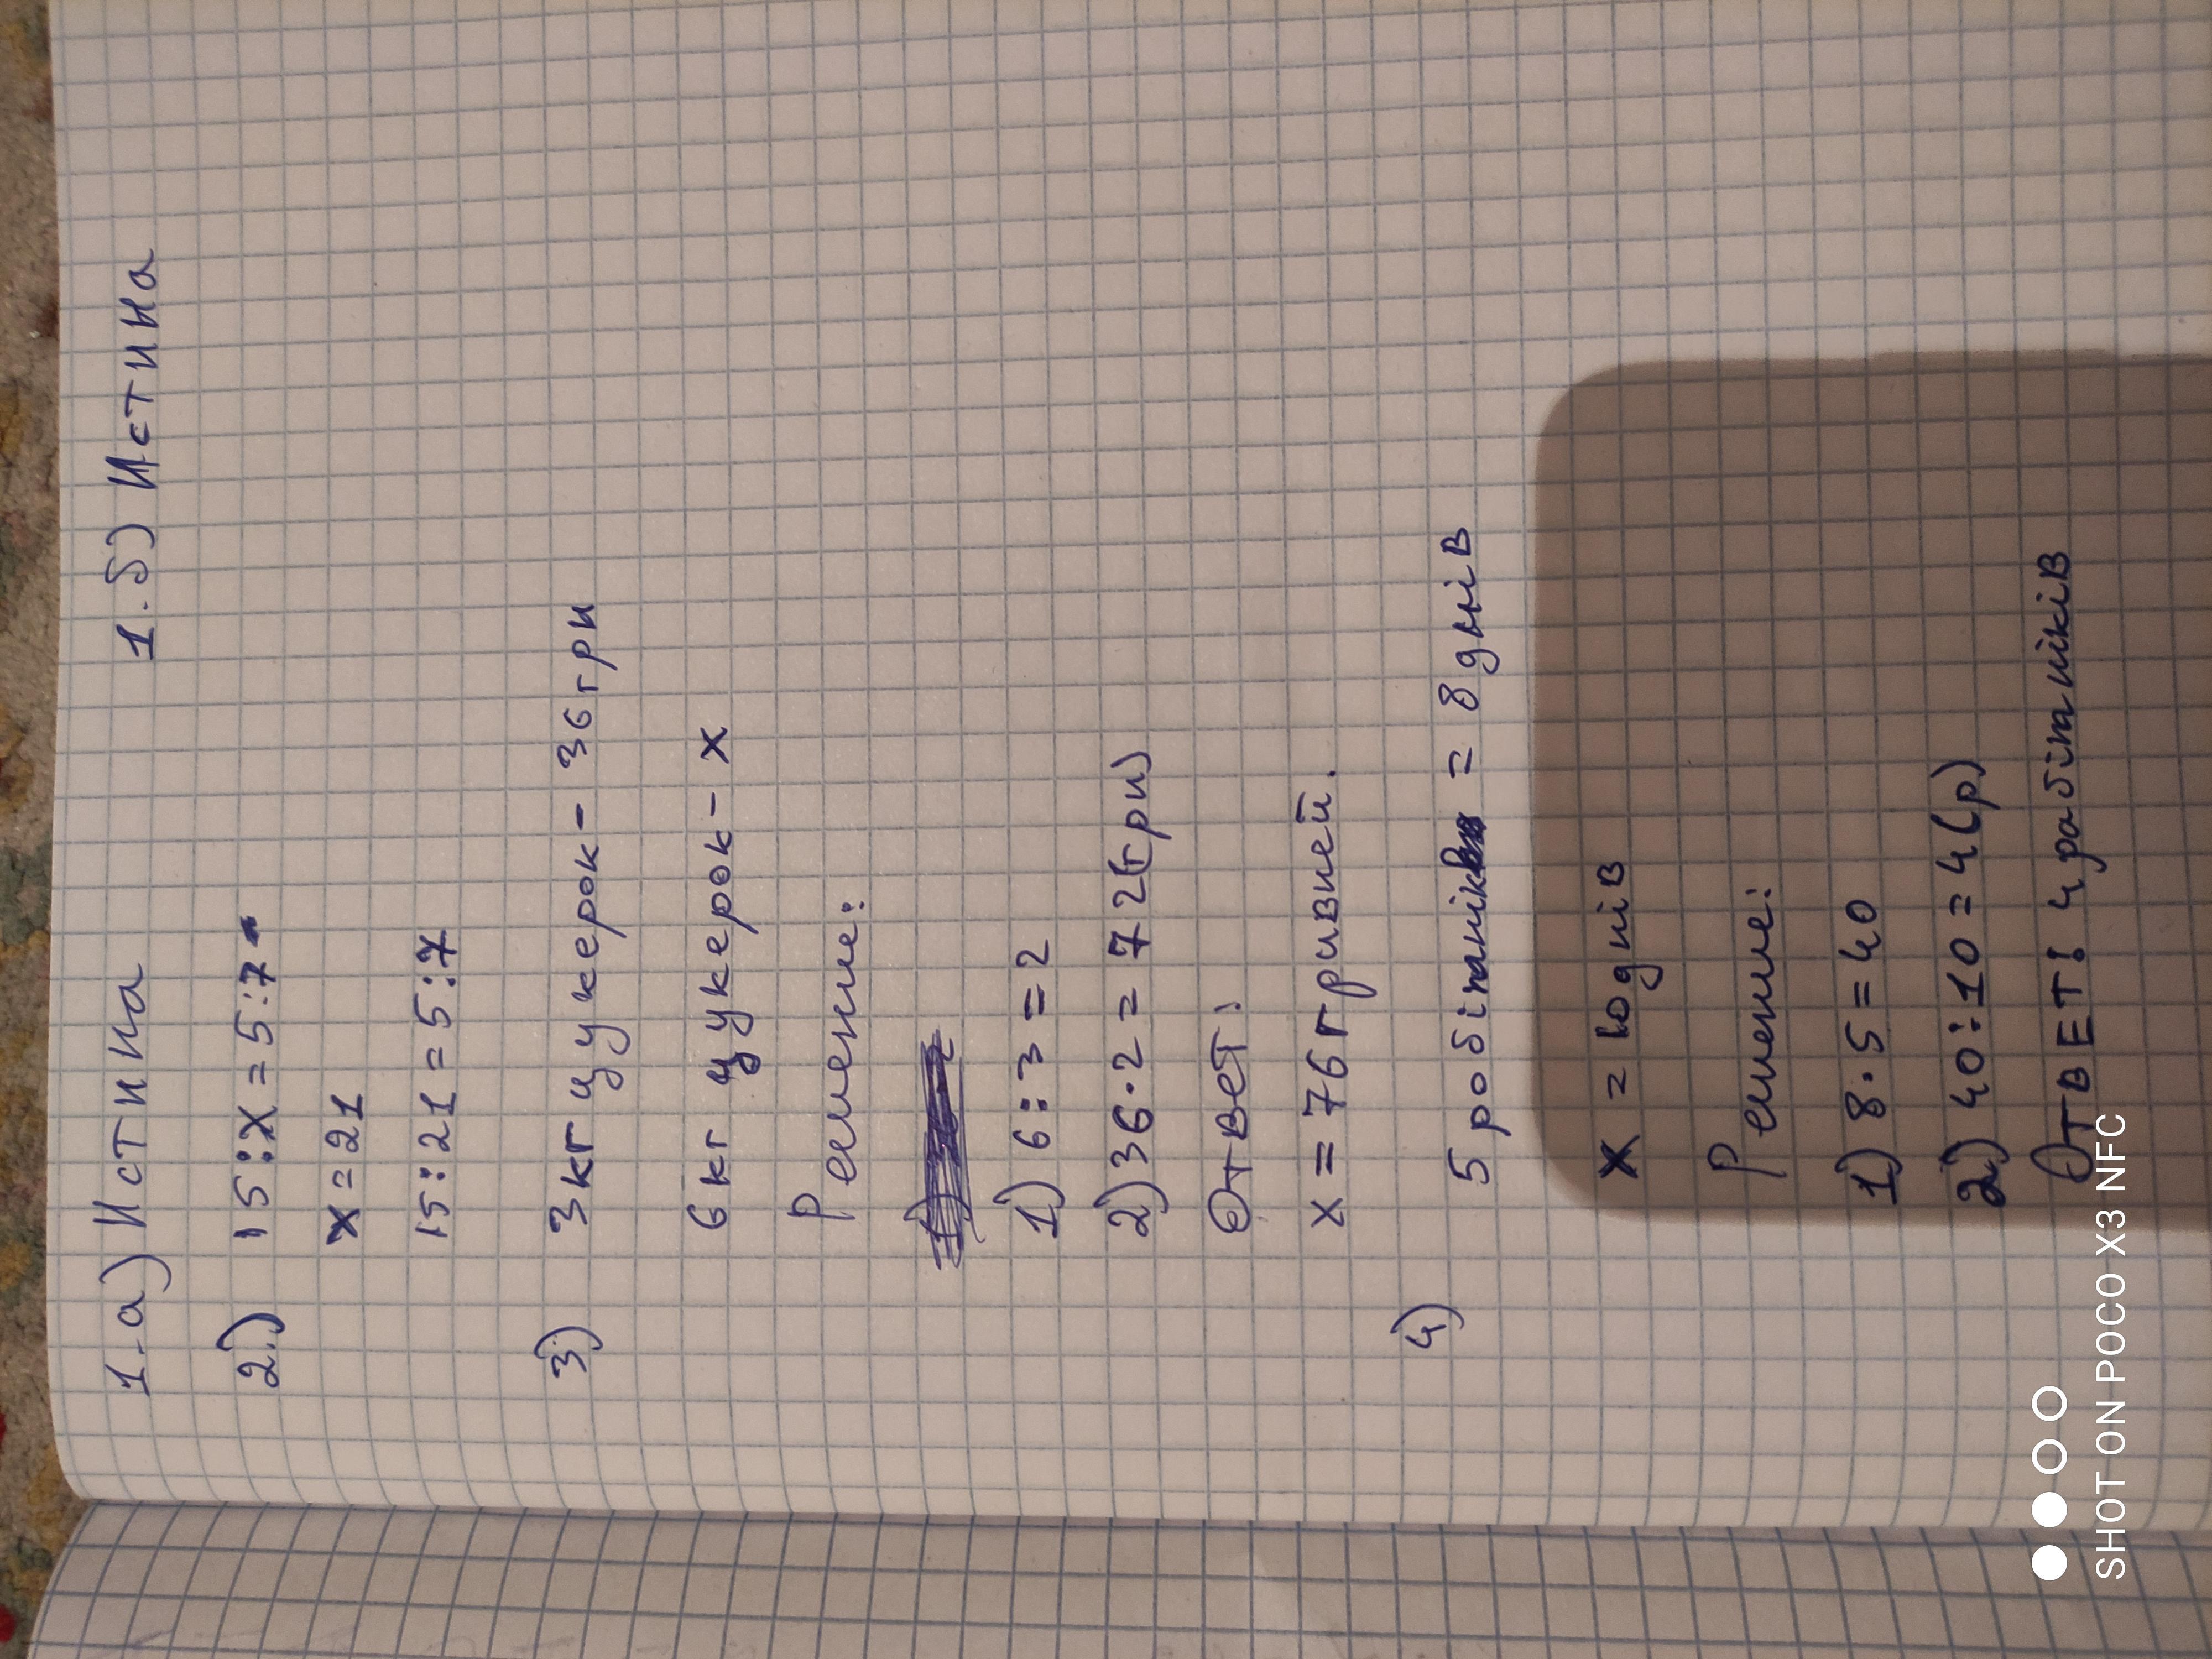 1.а) Истина 1.б) Истина
2.) 15:x=5:7
x=21
15:21=5:7
3) 3кг цукерок- 36гри
6кг цукерок- x
Решение:
1) 6:3=2
2) 36·2=72(гри)
Ответ:
x=76гривней.
4) 5робітник = 8днів
x = 10днів
Решение:
1) 8·5=40
2) 40:10=4(р)
ОтвЕТ: 4 рабітників
SHOT ON POCO X3 NFC